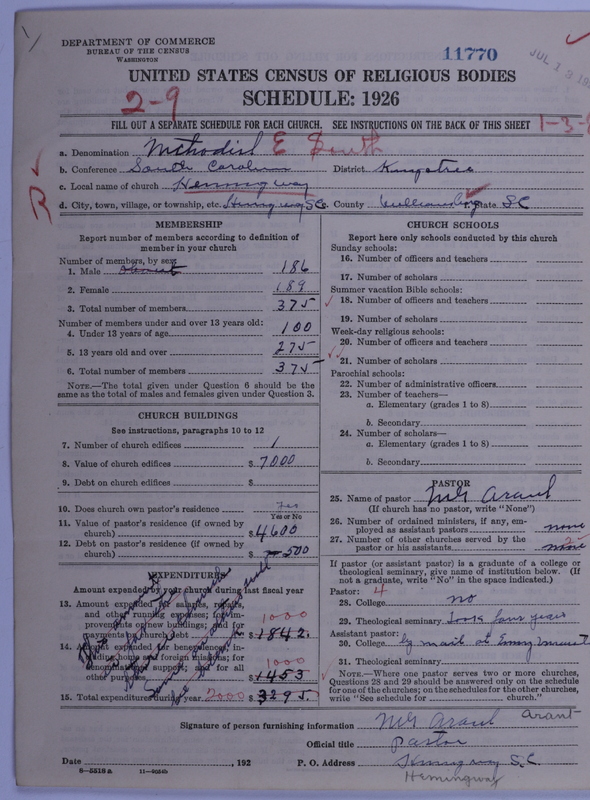 DEPARTMENT OF COMMERCE
BUREAU OF THE CENSUS
WASHINGTON
11770
JUL 13
UNITED STATES CENSUS OF RELIGIOUS BODIES
2-9
SCHEDULE: 1926
FILL OUT A SEPARATE SCHEDULE FOR EACH CHURCH. SEE INSTRUCTIONS ON THE BACK OF THIS SHEET
1-3-
a. Denomination Methodist E South
b. Conference South Carolina District Kingstree
c. Local name of church Hemingway
d. City, town, village, or township, etc. Hemingway SC e. County Williamsburg f. State SC
R
MEMBERSHIP
Report number of members according to definition of member in your church
Number of members, by sex:
1. Male 186
2. Female 189
3. Total number of members 375
Number of members under and over 13 years old:
4. Under 13 years of age 100
5. 13 years old and over 275
6. Total number of members 375
NOTE.—The total given under Question 6 should be
same as the total of males and females given under Question 3.
CHURCH BUILDINGS
See instructions, paragraphs 10 to 12
7. Number of church edifices 1
8. Value of church edifices $ 7000
9. Debt on church edifices $
10. Does church own pastor's residence yes
Yes or No
11. Value of pastor's residence (if owned by
church) $ 4600
12. Debt on pastor's residence (if owned by
church) $ 500
EXPENDITURES
Amount expended by your church during last fiscal year
13. Amount expended for salaries, repairs,
and other running expenses; for im-
provements or new buildings; and for
payments on church debt 1000 $ 1842.
14. Amount expended for benevolences, in-
cluding home and foreign missions; for
denominational support; and for all
other purposes 1000 $ 1453
15. Total expenditures during year 2000 $ 3295
CHURCH SCHOOLS
Report here only schools conducted by this church
Sunday schools:
16. Number of officers and teachers
17. Number of scholars
Summer vacation Bible schools:
18. Number of officers and teachers
19. Number of scholars
Week-day religious schools:
20. Number of officers and teachers
21. Number of scholars
Parochial schools:
22. Number of administrative officers
23. Number of teachers—
a. Elementary (grades 1 to 8)
b. Secondary
24. Number of scholars—
a. Elementary (grades 1 to 8)
b. Secondary
PASTOR
25. Name of pastor Arant
(If church has no pastor, write "None")
26. Number of ordained ministers, if any, em-
ployed as assistant pastors none
27. Number of other churches served by the
pastor or his assistants 2 none
If pastor (or assistant pastor) is a graduate of a college or
theological seminary, give name of institution below. (If
not a graduate, write "No" in the space indicated.)
Pastor: 4
28. College no
29. Theological seminary Took four years
Assistant pastor:
30. College by mail at Emory
31. Theological seminary
NOTE.—Where one pastor serves two or more churches,
Questions 28 and 29 should be answered only on the schedule
for one of the churches; on the schedules for the other churches,
write "See schedule for church."
Signature of person furnishing information Arant Arant
Official title Pastor
Date , 192 P. O. Address Hemingway S.C.
Hemingway
8—5518a 11—9054b